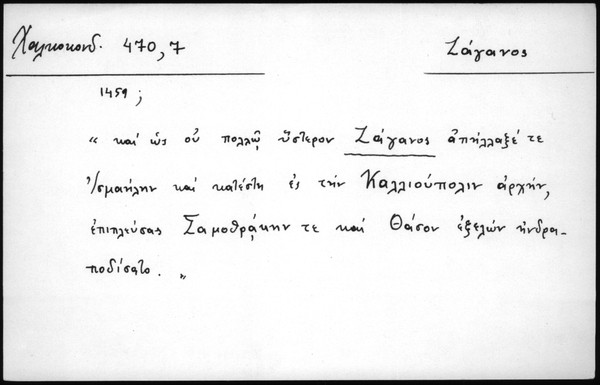 Χαλκοκονδ. 470,7
Ζάγανος
1459 ;
" καὶ ὡς οὐ πολλῷ ὕστερον Ζάγανος ἀπήλλαξέ τε
Ἰσμαήλην καὶ κατέστη ἐς τὴν Καλλιούπολιν ἀρχήν,
ἐπιπλεύσας Σαμοθρᾴκην τε καὶ Θάσον ἐξελὼν ἠνδρα-
ποδίσατο. "